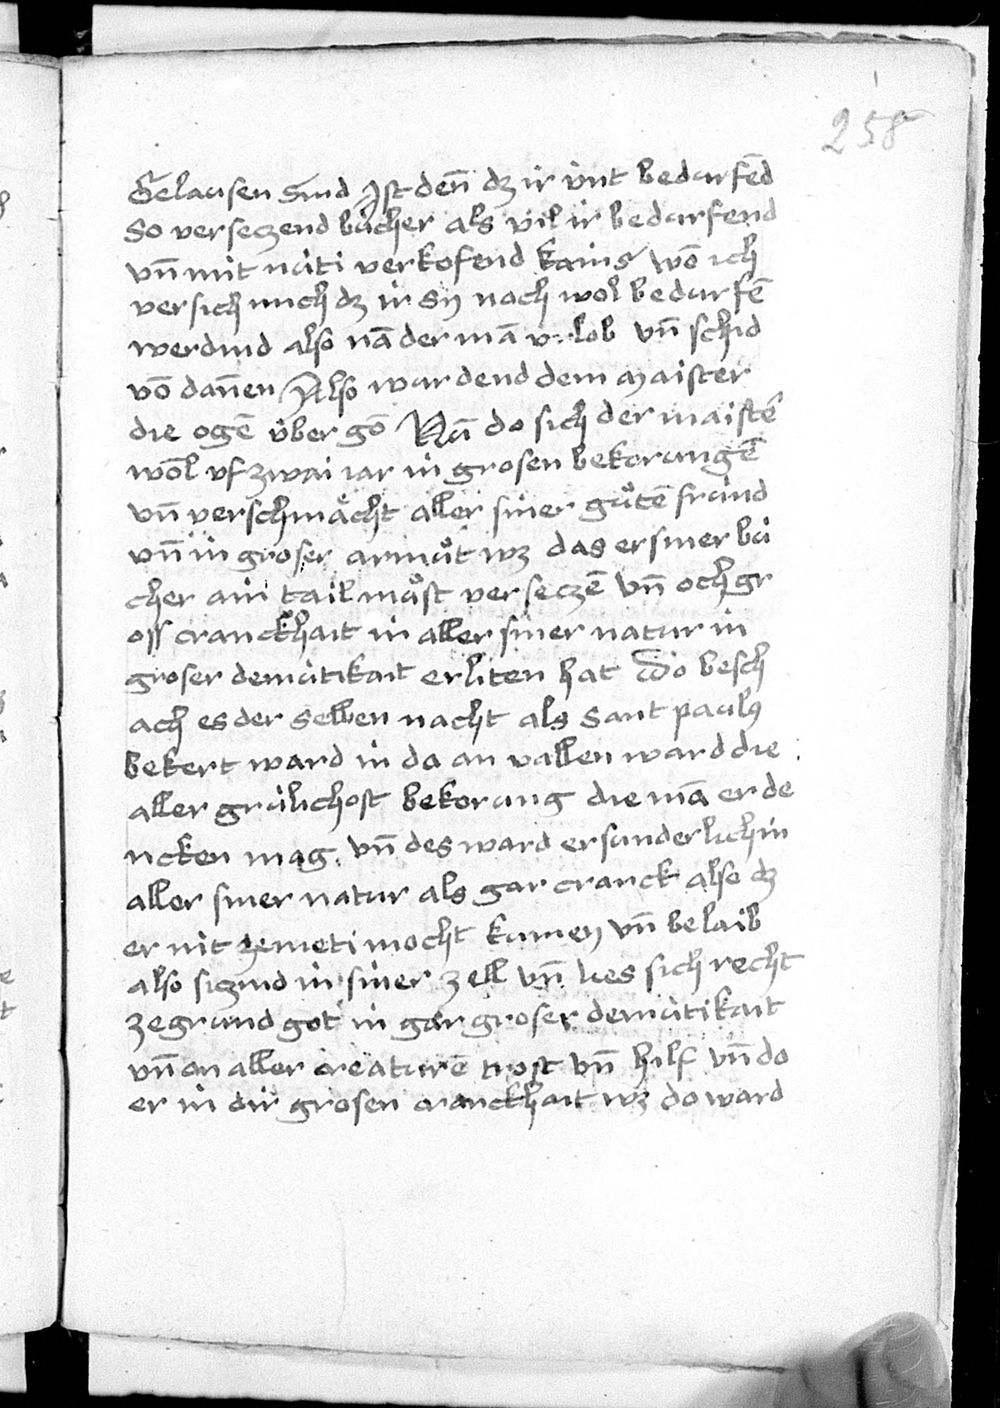 258
Gelausen Sind Jst deñ dz ir üt bedurfēd
So verseczend bücher als vil ir bedurfend
vñ mit näti verkofend kains wē ich
versich mich dz ir sy nach wol bedurfē
werdind also nā der mā vrlob vñ schid
vō dañen Also wurdend dem maister
die ogē über gō Nū do sich der maister
wol vf zwai iar in grosen bekorungē
vñ verschmächt aller siner gůtē fründ
vñ in groser armůt wz das er siner bü
cher ain tail můst verseczē vñ och gr
oss cranckhait in aller siner natur in
groser demütikait erliten hat Do besch
ach es der selben nacht als Sant paulꝯ
bekert ward in do an vallen ward die
aller grülichost bekorung die mā erde
ncken mag. vñ des ward er sunderlich in
aller siner natur als gar cranck also dz
er nit ze meti mocht kumen vñ belaib
also siczind in siner zell vñ lies sich recht
ze grund got in gar groser demütikait
vñ an aller creaturē trost vñ hilf vñ do
er in dir grosen cranckhait wz do ward